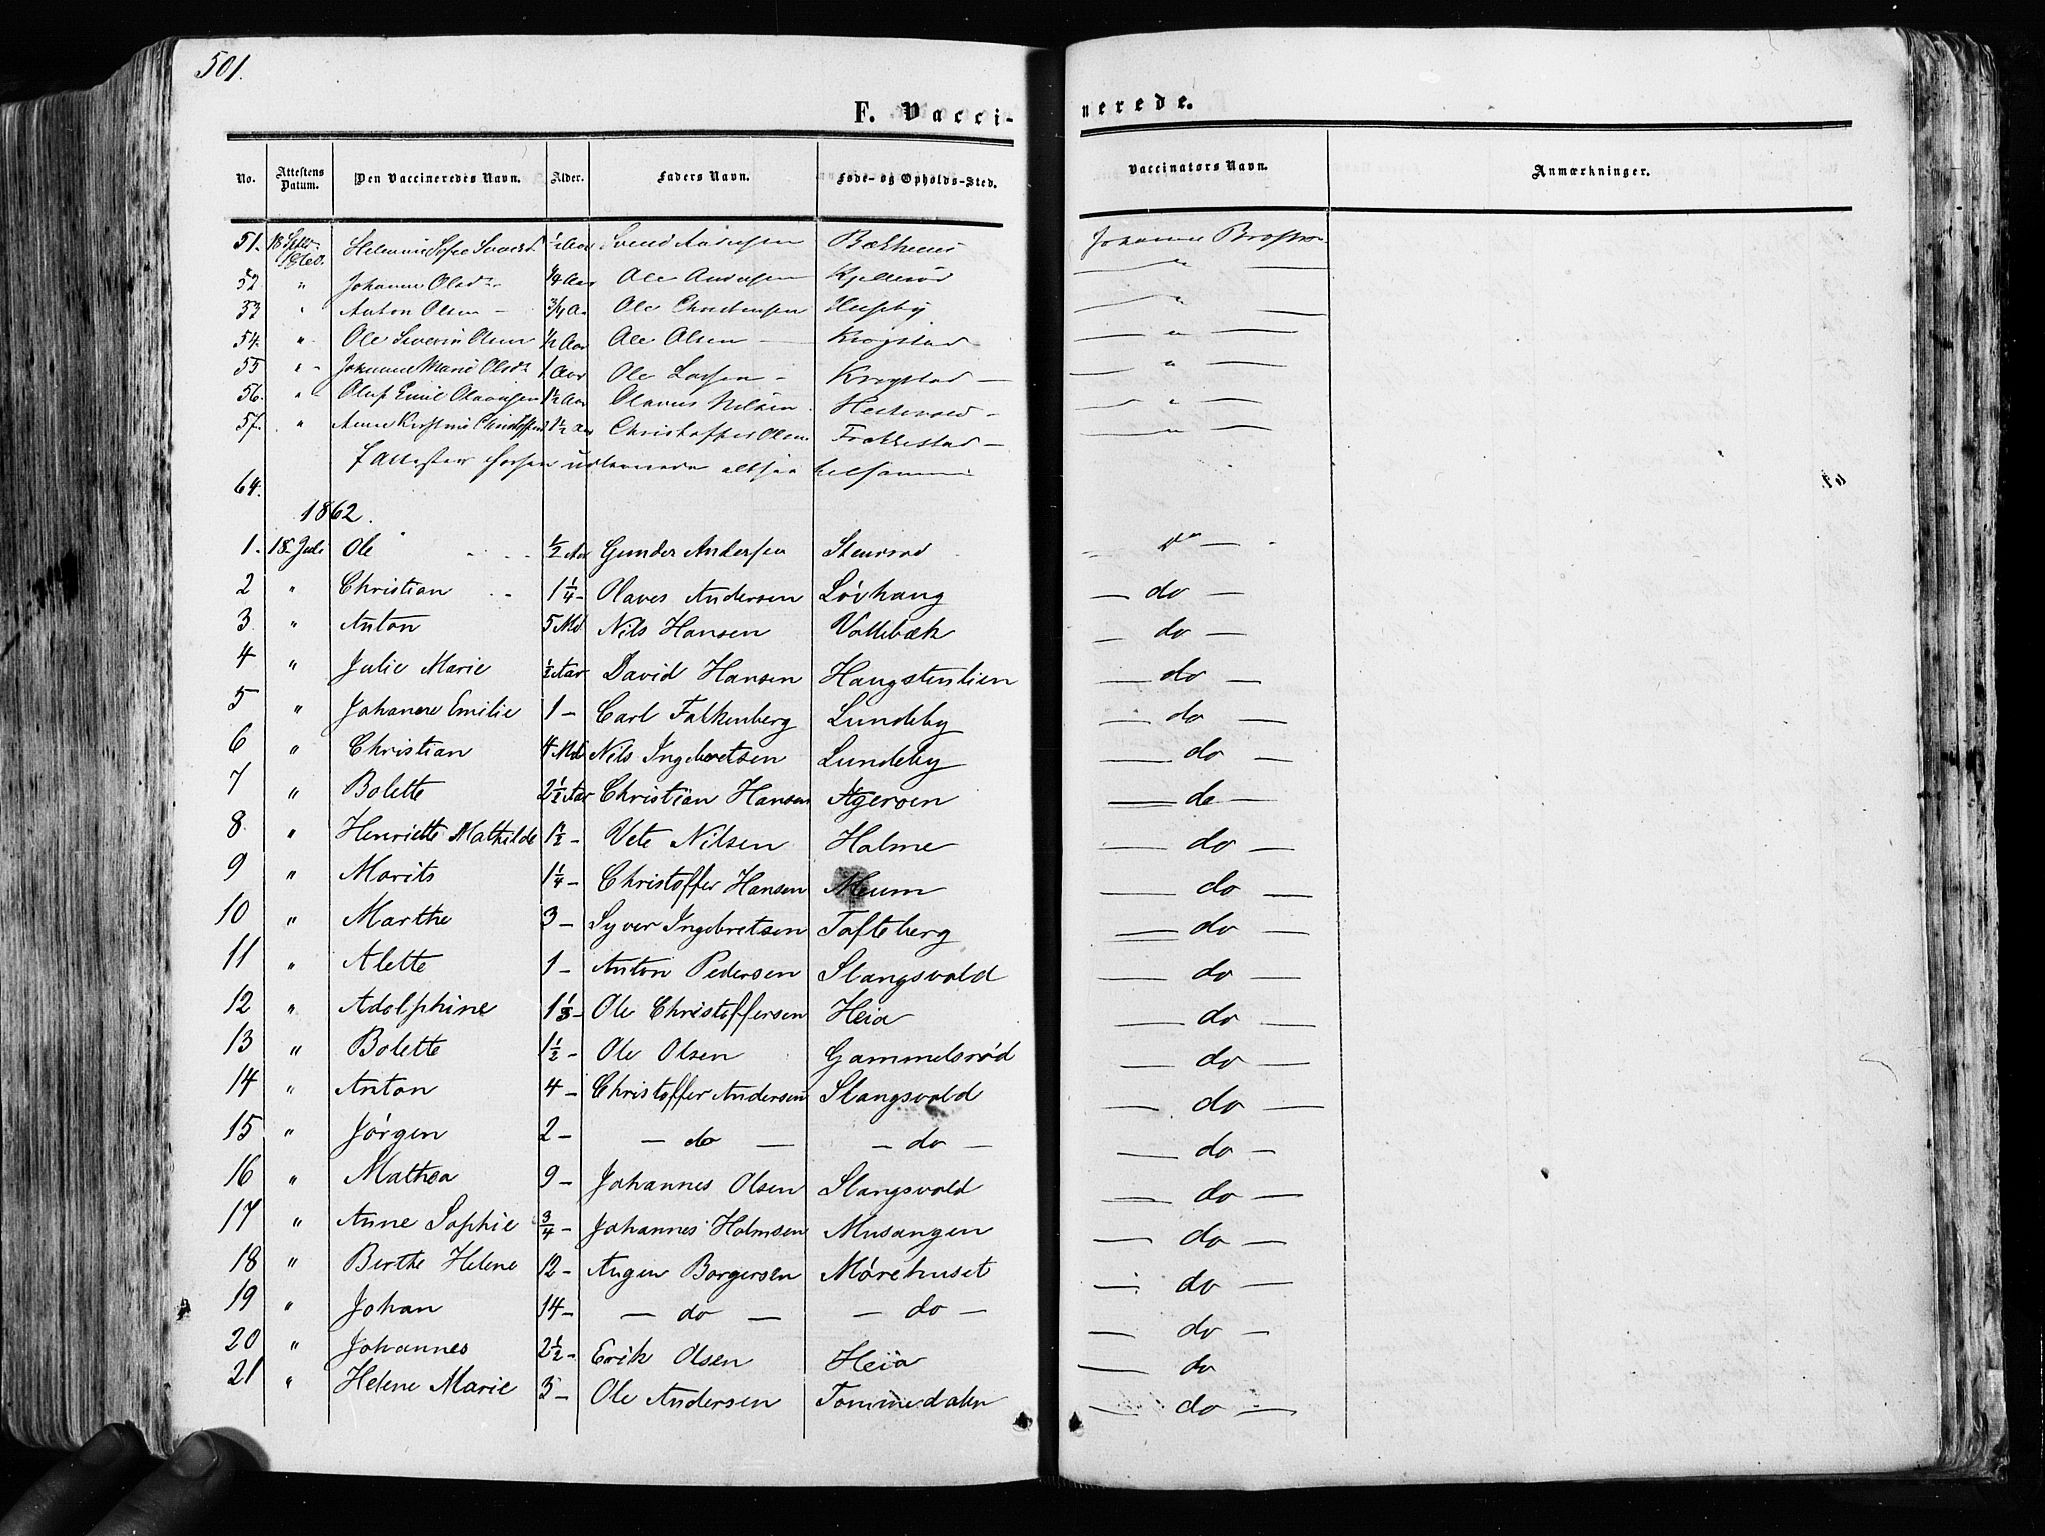 501.
F. Vaccinerede.
No. Attestens Datum. Den Vaccineredes Navn. Alder. Faders Navn. Føde- og Opholds-Sted. Vaccinators Navn. Anmærkninger.
51. 18 Sofie ½ Aar Svend Andersen Johanne
52 " Johanne Olsd. ¼ Aar Ole Andersen "
53 " Anton Olsen ¾ Aa Ole Christensen Huseby "
54. " Ole Severin Olsen ½ Aar Ole Olsen Krogstad "
55 " Johanne Marie Olsd. 1 Aar Ole Larsen Krogstad "
56. " Oluf Emil Olavesen 1½ Aar Olaves Nilsen "
57. " Anne Kirstine 1½ Aar Christoffer Olsen "
7 Attester altsaa
64.
1862.
1. 18 Juli Ole ½ Aar Gunder Andersen Do
2 " Christian 1¼ - Olaves Andersen Løvhaug — do —
3. " Anton 5 Md. Nils Hansen Vallebæk — do —
4 " Julie Marie ½ Aar David Hansen Haugstenlien — do —
5 " Johanne Emilie 1 - Carl Falkenberg Lundeby — do —
6 " Christian 4 Md. Nils Ingebretsen Lundeby — do —
7 " Bolette 2½ Aar Christian Hansen Ageroen — do —
8. " Henriette Mathilde 1½ - Nilsen Holme — do —
9 " Morits 1¼ - Christoffer Hansen Meum — do —
10 " Marthe 3 - Syver Ingebretsen Tofteberg — do —
11 " Alette 1 - Anton Pedersen Slangsvold — do —
12 " Adolphine 1⅓ - Ole Christoffersen Heia — do —
13 " Bolette 1½ - Ole Olsen Gammelsrød — do —
14 " Anton 4 - Christoffer Andersen Slangsvold — do —
15 " Jørgen 2 - — do — — do — — do —
16 " Mathea 9 - Johannes Olsen Slangsvold — do —
17 " Anne Sophie ¾ - Johannes Holmsen Musangen — do —
18 " Berthe Helene 12 - Augen Borgersen Mørehuset — do —
19 " Johan 14 - — do — — do — — do —
20 " Johannes 2½ - Erik Olsen Heia — do
21 " Helene Marie 3 - Ole Andersen Tommedalen — do —